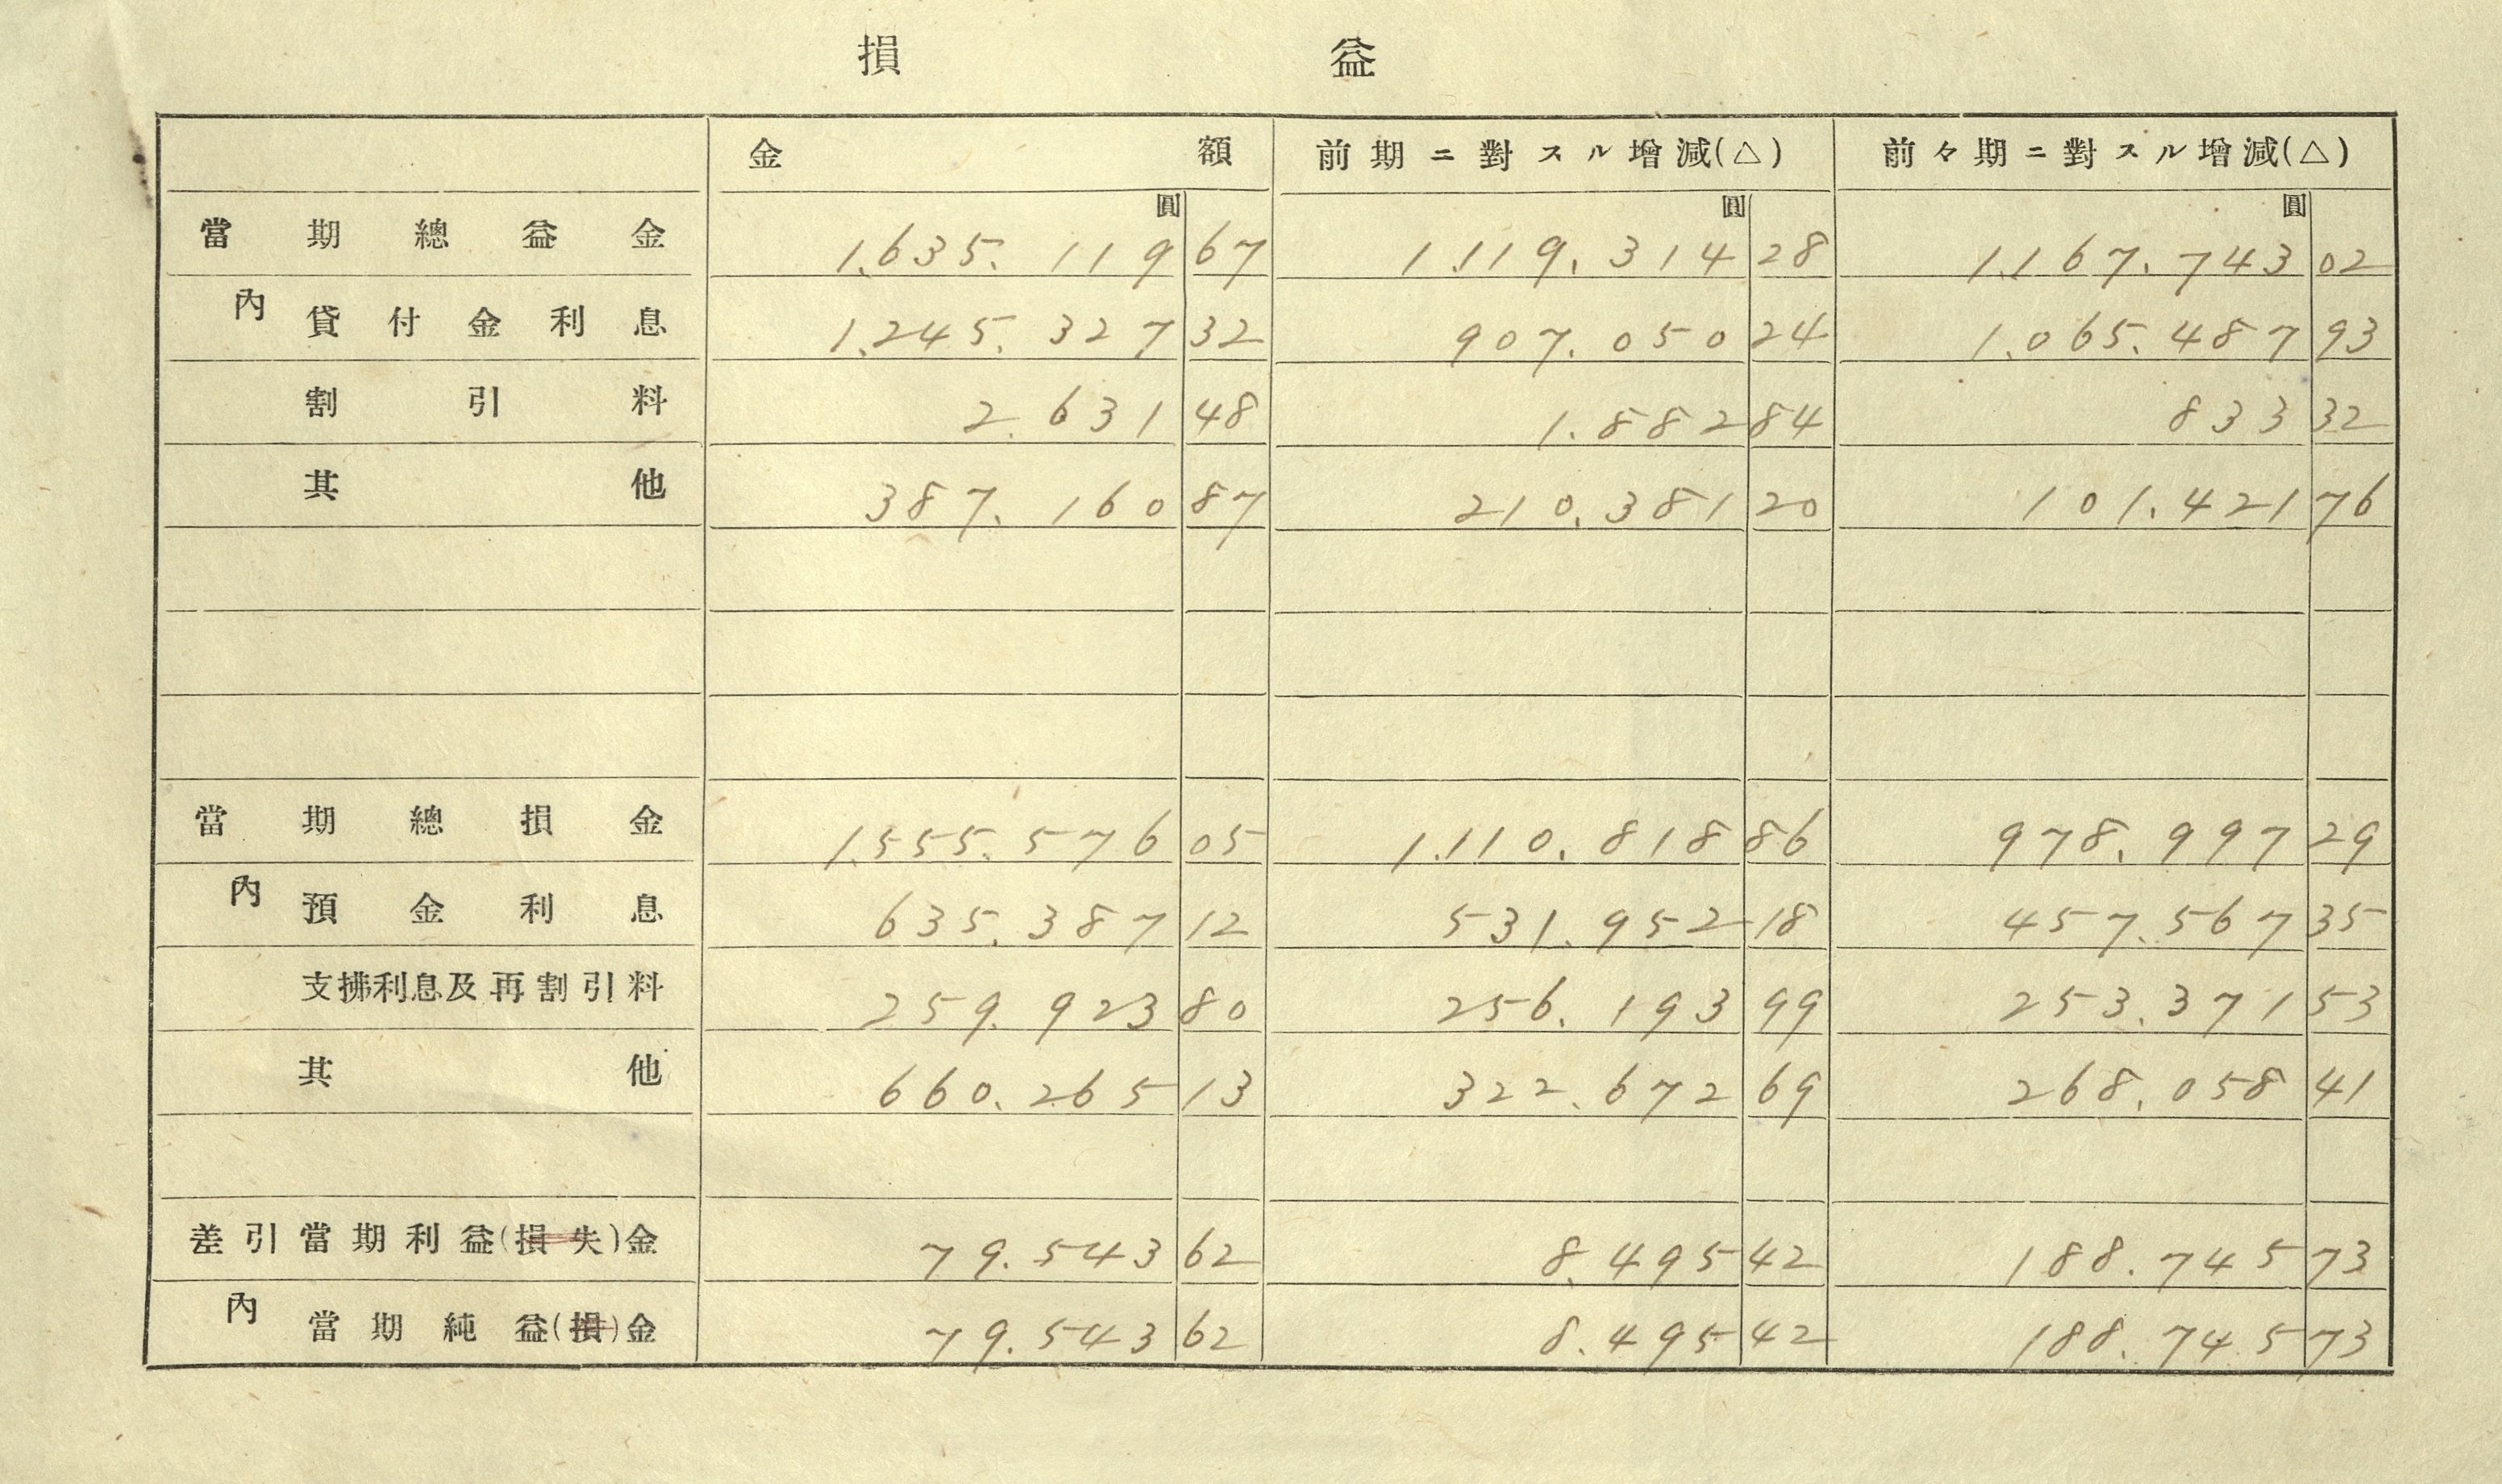 損益
金額 前期ニ對スル增減(△) 前々期ニ對スル增減(△)
圓 圓 圓
當期總益金 1.635.119 67 1.119.314 28 1.167.743 02
內 貸付金利息 1.245.327 32 907.050 24 1.065.487 93
割引料 2.631 48 1.882 84 833 32
其他 387.160 87 210.381 20 101.421 76
當期總損金 1.555.576 05 1.110.818 86 978.997 29
內 預金利息 635.387 12 531.952 18 457.567 35
支拂利息及再割引料 259.923 80 256.193 99 253.371 53
其他 660.265 13 322.672 69 268.058 41
差引當期利益(損失)金 79.543 62 8.495 42 188.745 73
內 當期純益(損)金 79.543 62 8.495 42 188.745 73